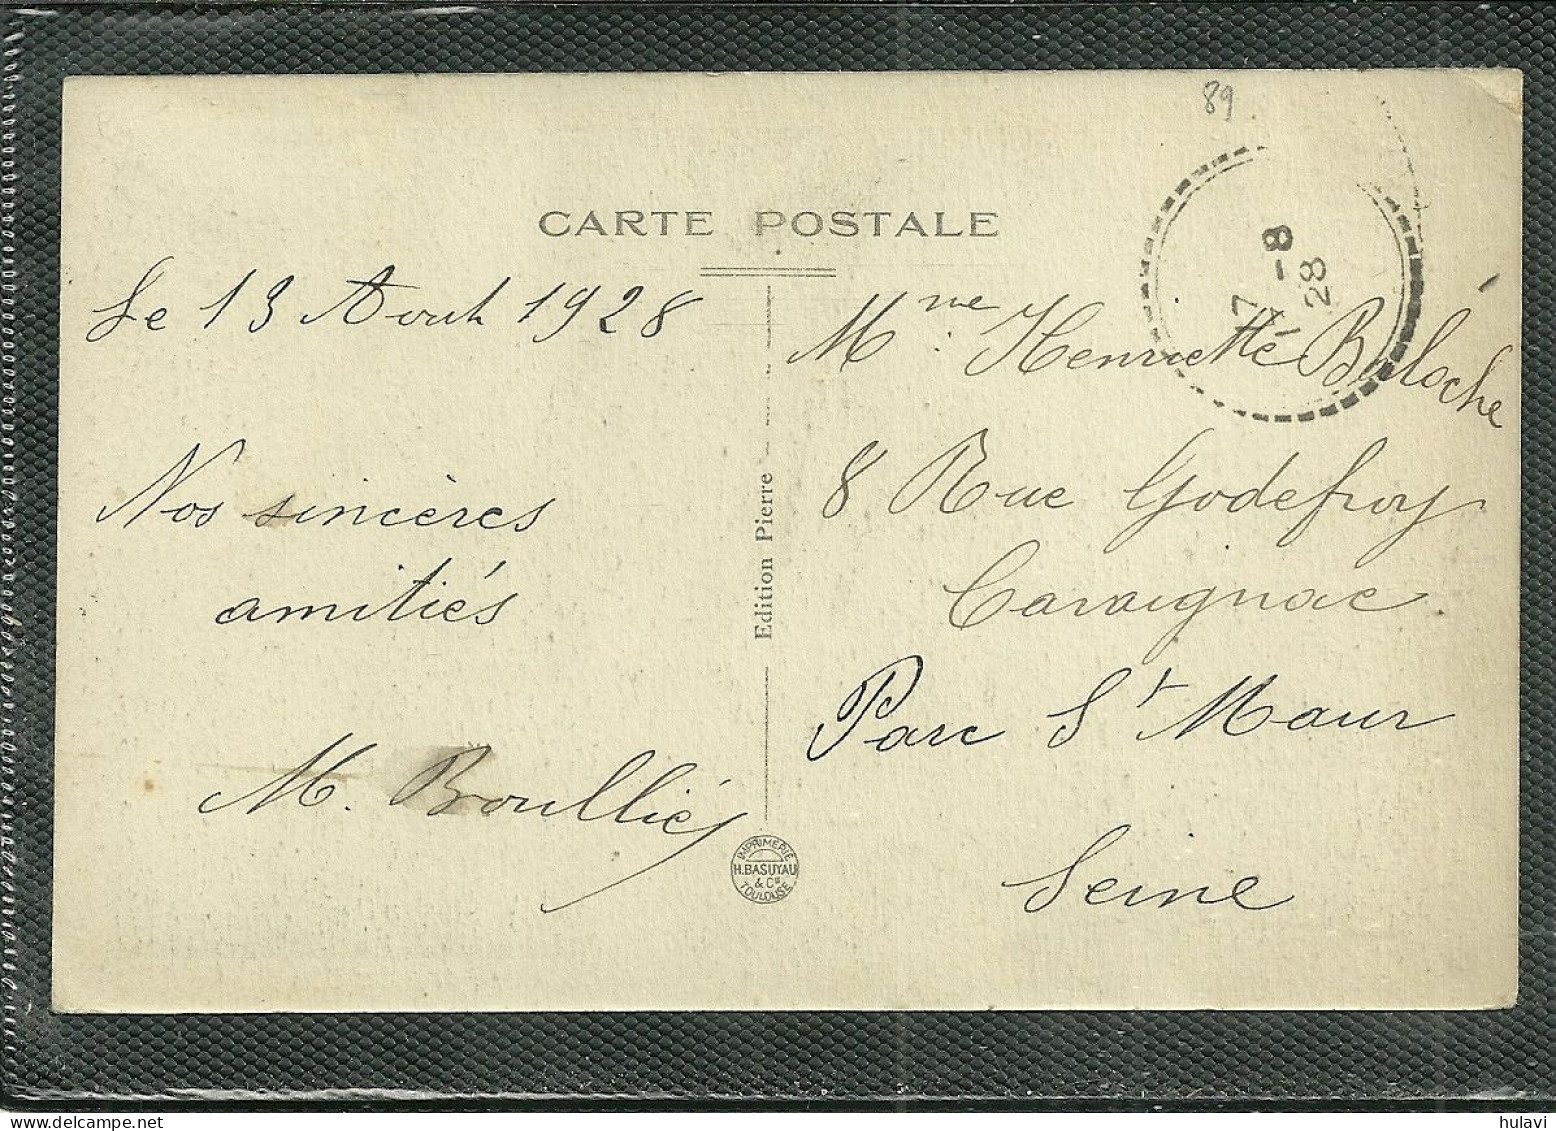 89
CARTE POSTALE
7 -8
28
Le 13 Aout 1928
Nos sincères
amitiés
M. Boulliés
Edition Pierre
IMPRIMERIE
H. BASUYAU
& Cie
TOULOUSE
Mme Henriette Baloche
8 Rue Godefroy
Cavaignac
Parc St Maur
Seine
www.delcampe.net
hulavi